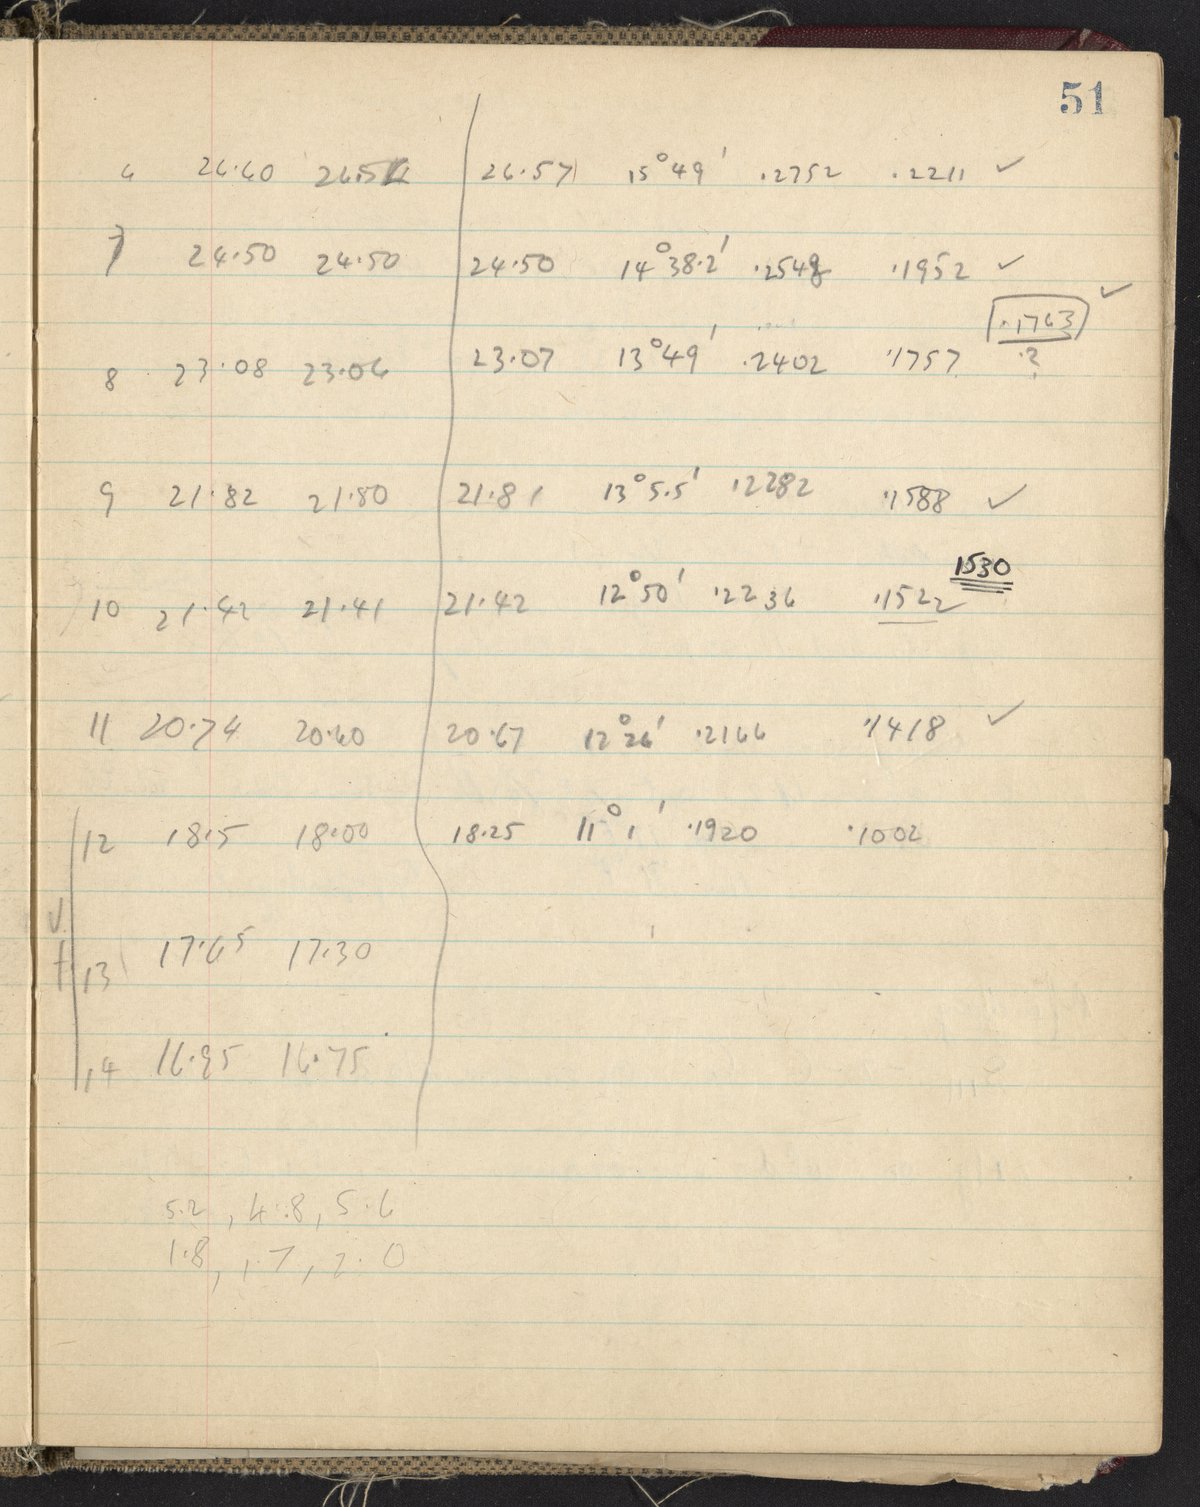 51
6 26·60 26·5 26·57 15°49' ·2752 ·2211 ✓
7 24·50 24·50 24·50 14°38·2' ·2548 ·1952 ✓
·1763 ✓
8 23·08 23·06 23·07 13°49' ·2402 ·1757 ·?
9 21·82 21·80 21·81 13°5·5' ·2282 ·1588 ✓
1530
10 21·42 21·41 21·42 12°50' ·2236 ·1522
11 20·74 20·60 20·67 12°26' ·2166 ·1418 ✓
12 18·5 18·00 18·25 11°1' ·1920 ·1002
V.
f 13 17·65 17·30
14 16·95 16·75
5·2, 4·8, 5·6
1·8, 1·7, 2·0